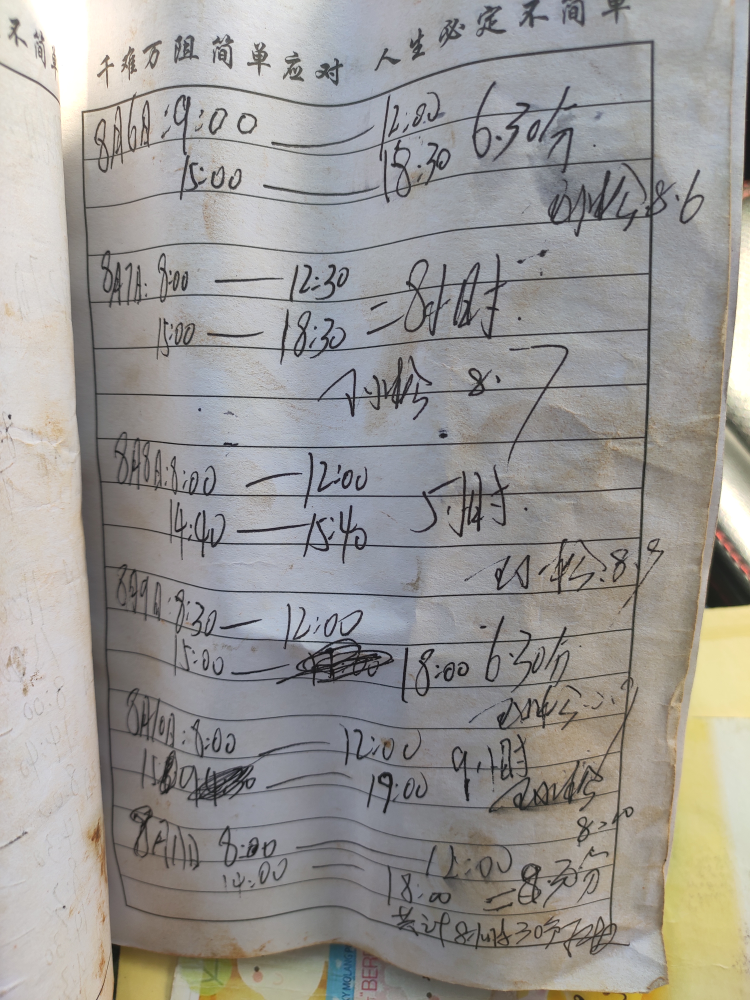 不简单
千难万阻简单应对 人生必定不简单
8月6日:9:00 — 12:00 6.30分
15:00 — 18:30
8.6
8月7日: 8:00 — 12:30
15:00 — 18:30 =8小时.
8.7
8月8日:8:00 — 12:00
14:40 — 15:40 5小时.
8.8
8月9日:8:30 — 12:00
15:00 — 18:00 6.30分
8月10日:8:00 — 12:00 9小时
19:00
8月11日 8:00 — 12:00
14:00 — 18:00 =8.30分
共计8小时30分